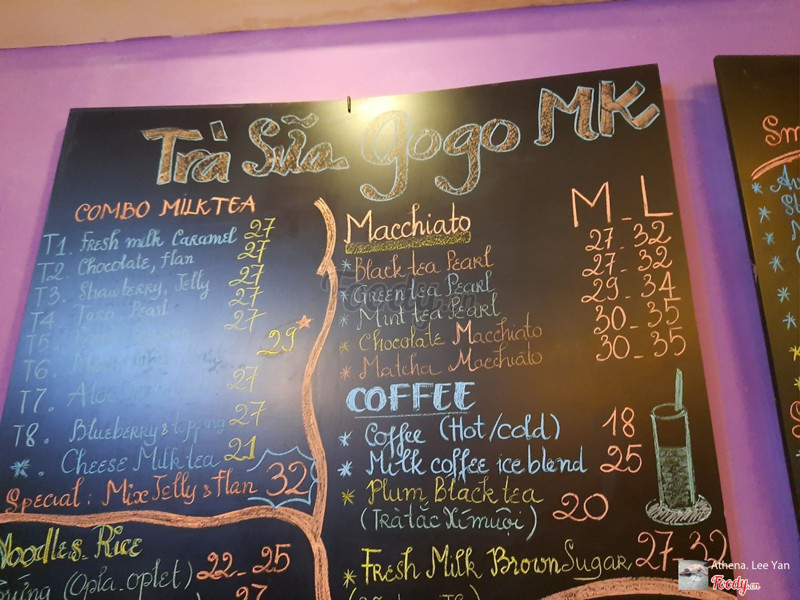 Trà Sữa gogo MK
COMBO MILKTEA
T1. Fresh milk Caramel 27
T2 Chocolate, flan 27
T3. Strawberry, Jelly 27
T4 Taro Pearl 27
T5 27
29
T6.
T7. Aloe 27
T8. Blueberry & topping 27
*. Cheese Milk tea 21
Special: Mix Jelly & flan 32
Noodles. Rice
(Opla. oplet) 22-25
27
Macchiato M - L
* Black tea Pearl 27-32
* Green tea Pearl 27-32
* Mint tea Pearl 29-34
* Chocolate Macchiato 30-35
* Matcha Macchiato 30-35
COFFEE
* Coffee (Hot/cold) 18
* Milk coffee ice blend 25
* Plum Black tea
(Trà tắc Xí muội) 20
* Fresh Milk Brown Sugar 27-32
Sm
Athena. Lee Yan
Foody.vn